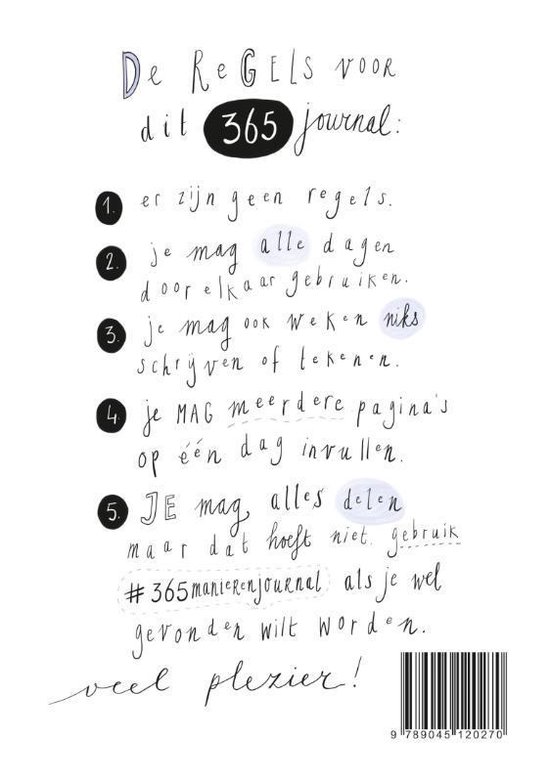 De ReGELS voor
dit 365 journal:
1. er zijn geen regels.
2. je mag alle dagen
door elkaar gebruiken.
3. je mag ook weken niks
schrijven of tekenen.
4. je MAG meerdere pagina's
op één dag invullen.
5. JE mag alles delen
maar dat hoeft niet. gebruik
#365manierenjournal als je wel
gevonden wilt worden.
veel plezier!
9 789045 120270